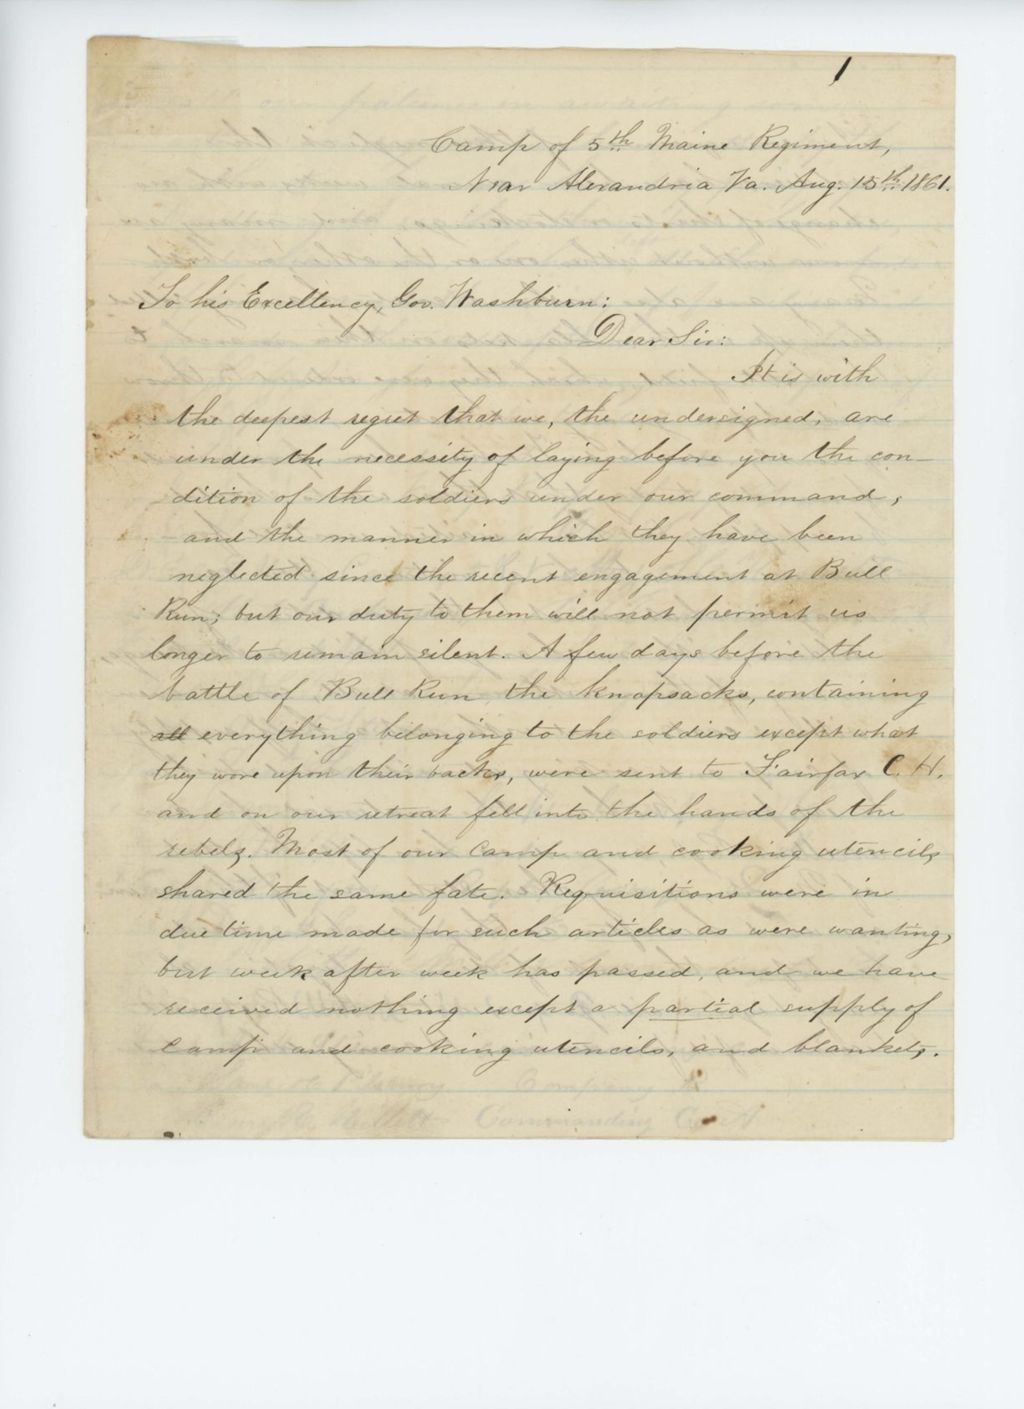 1
Camp of 5th Maine Regiment,
Near Alexandria Va. Aug. 15th 1861.
To his Excellency, Gov. Washburn:
Dear Sir:
It is with
the deepest regret that we, the undersigned, are
under the necessity of laying before you the con-
dition of the soldiers under our command,
and the manner in which they have been
neglected since the recent engagement at Bull
Run; but our duty to them will not permit us
longer to remain silent. A few days before the
battle of Bull Run the knapsacks, containing
all everything belonging to the soldiers except what
they wore upon their backs, were sent to Fairfax C. H.
and on our retreat fell into the hands of the
rebels. Most of our camp and cooking utencils
shared the same fate. Requisitions were in
due time made for such articles as were wanting,
but week after week has passed, and we have
received nothing except a partial supply of
camp and cooking utencils, and blankets.